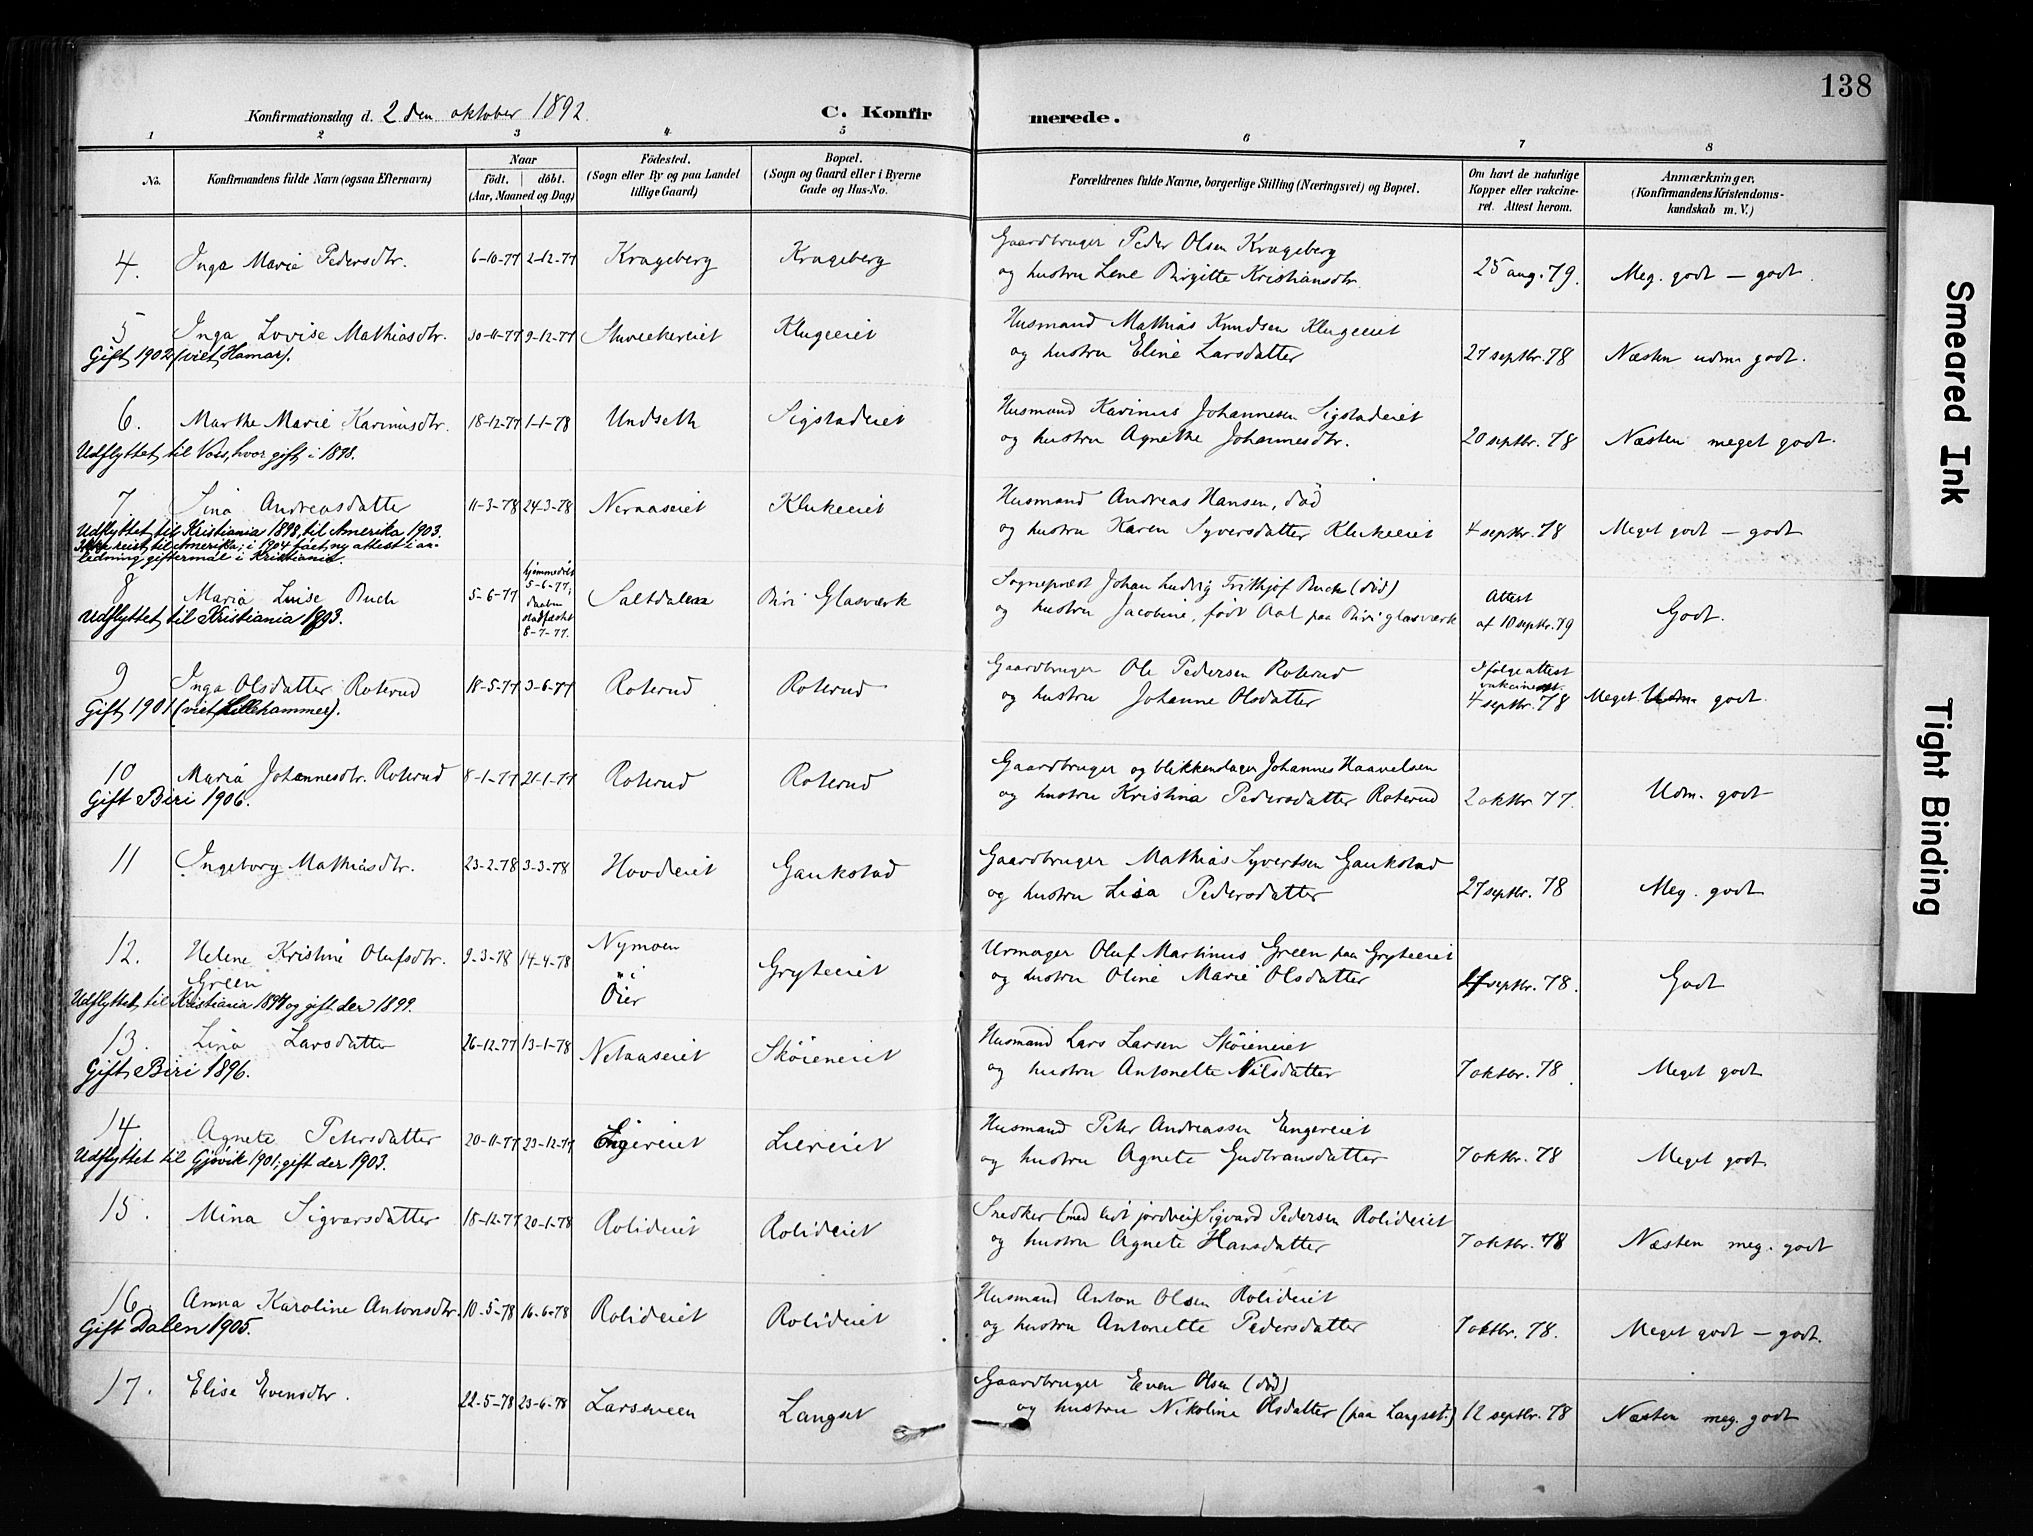 138
Konfirmationsdag d. 2 den oktober 1892.
C. Konfirmerede.
1 2 3 4 5 6 7 8
No.
Konfirmandens fulde Navn (ogsaa Efternavn)
Naar
födt. döbt.
(Aar, Maaned og Dag)
Födested.
(Sogn eller By og paa Landet
tillige Gaard)
Bopæl.
(Sogn og Gaard eller i Byerne
Gade og Hus-No.
Forældrenes fulde Navne, borgerlige Stilling (Næringsvei) og Bopæl.
Om havt de naturlige
Kopper eller vakcine-
ret. Attest herom.
Anmærkninger.
(Konfirmandens Kristendoms-
kundskab m. V.)
4. Inga Marie Pedersdtr. 6-10-77 2-12-77 Krageberg Krageberg
Gaardbruger Peder Olsen Krageberg
og hustru Lene Birgitte Kristiansdtr. 25 aug. 79. Meg. godt – godt.
5 Inga Lovise Mathiasdtr. 30-11-77 9-12-77 Klugeeiet
Gift 1902 (viet Hamar).
Husmand Mathias Knudsen Klugeeiet
og hustru Eline Larsdatter 27 septbr. 78 Næsten udm. godt.
6. Marthe Marie Karinusdtr. 18-12-77 1-1-78 Undseth Sigstadeiet
Udflyttet til Voss, hvor gift i 1898.
Husmand Karinus Johannesen Sigstadeiet
og hustru Agnethe Johannesdtr. 20 septbr. 78 Næsten meget godt.
7. Lina Andreasdatter 11-3-78 24-3-78 Neraaseiet Klukeeiet
Udflyttet til Kristiania 1898, til Amerika 1903.
Ikke reist til Amerika; i 1904 faaet ny attest i an-
ledning giftermål i Kristiania.
Husmand Andreas Hansen, død
og hustru Karen Syversdatter Klukeeiet 4 septbr. 78 Meget godt – godt
8 Maria Luise Buch 5-6-77 hjemmedøbt
5-6-77;
daaben
stadfæstet
8-7-77. Saltdalen Biri Glasværk
Udflyttet til Kristiania 1893.
Sognepræst Johan Ludvig Frithjof Buch (død)
og hustru Jacobine, født Aal paa Biri glasværk Attest
af 10 septbr. 79 Godt.
9 Inga Olsdatter Roterud 18-5-77 3-6-77 Roterud Roterud
Gift 1901 (viet Lillehammer).
Gaardbruger Ole Pedersen Roterud
og hustru Johanne Olsdatter Ifølge attest
vakcineret.
4 septbr. 78 Meget godt.
10 Maria Johannesdtr. Roterud 8-1-77 21-1-77 Roterud Roterud
Gift Biri 1906.
Gaardbruger og blikkenslager Johannes Haavelsen
og hustru Kristina Pedersdatter Roterud 2 oktbr. 77. Udm. godt
11 Ingeborg Mathiasdtr. 23-2-78 3-3-78 Hovdeiet Gaukstad
Gaardbruger Mathias Syvertsen Gaukstad
og hustru Lisa Pedersdatter 27 septbr. 78 Meg. godt
12. Helene Kristine Olufsdtr. 9-3-78 14-4-78 Nymoen
i
Öier Gryteeiet
Green
Udflyttet til Kristiania 1897 og gift der 1899.
Urmager Oluf Martinus Green paa Gryteeiet
og hustru Oline Marie Olsdatter septbr. 78. Godt
13. Lina Larsdatter 26-12-77 13-1-78 Nevaaseiet Sköieneiet
Gift Biri 1896.
Husmand Lars Larsen Sköieneiet
og hustru Antonette Nilsdatter 7 oktbr. 78. Meget godt
14. Agnete Petersdatter 20-11-77 23-12-77 Engereiet Liereiet
Udflyttet til Gjøvik 1901; gift der 1903.
Husmand Petr Andreassen Engereiet
og hustru Agnete Gudbransdatter 7 oktbr. 78 Meget godt
15. Mina Sigvarsdatter 18-12-77 20-1-78 Rolideiet Rolideiet
Snedker (med lidt jordvei) Sigvard Pedersen Rolideiet
og hustru Agnete Hansdatter 7 oktbr. 78 Næsten meg. godt
16 Anna Karoline Antonsdtr. 10-5-78 16-6-78 Rolideiet Rolideiet
Gift Dalen 1905.
Husmand Anton Olsen Rolideiet
og hustru Antonette Pedersdatter 7 oktbr. 78. Meget godt – godt.
17. Elise Evensdtr. 22-5-78 23-6-78 Larssveen Langset
Gaardbruger Even Olsen (død)
og hustru Nikoline Olsdatter (paa Langset.) 12 septbr. 78 Næsten meg. godt
Smeared Ink
Tight Binding